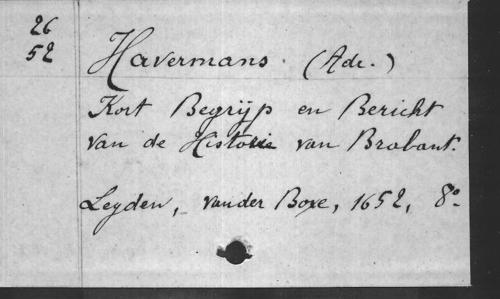 26
52
Havermans. (Adr.)
Kort Begrijp en Bericht
van de Historie van Brabant.
Leyden, vander Boxe, 1652, 8º